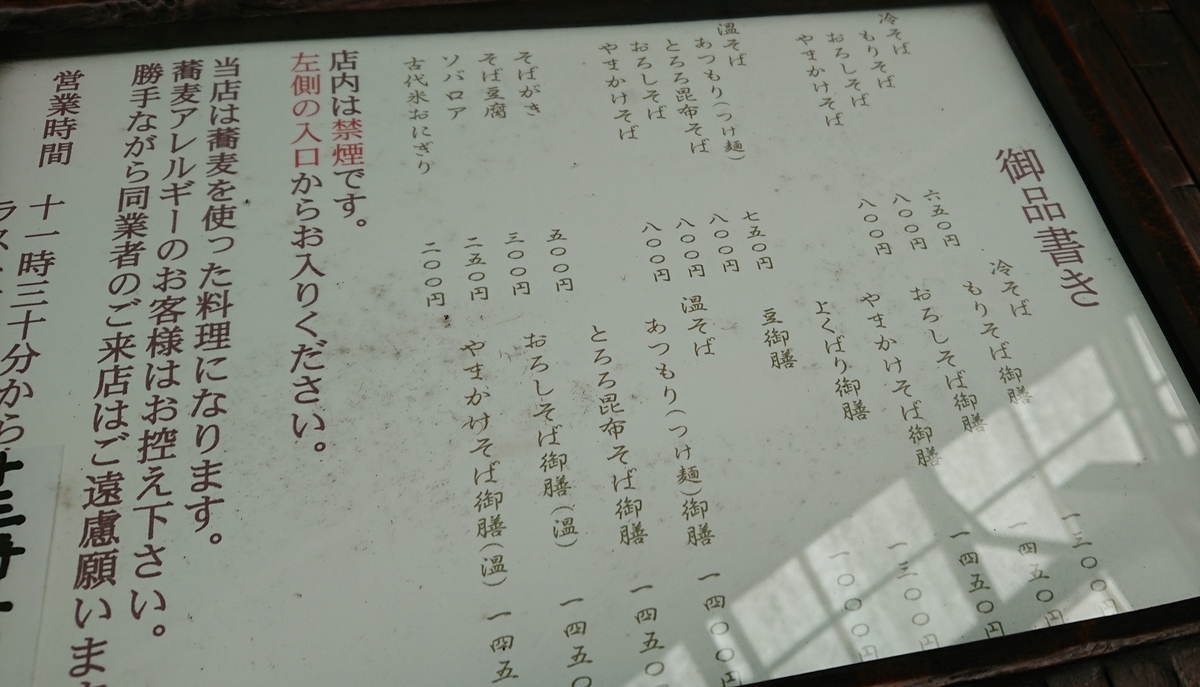 御品書き
冷そば
もりそば 六五〇円
おろしそば 八〇〇円
やまかけそば 八〇〇円
温そば
あつもり(つけ麺) 七五〇円
とろろ昆布そば 八〇〇円
おろしそば 八〇〇円
やまかけそば 八〇〇円
そばがき 五〇〇円
そば豆腐 三〇〇円
ソバロア 二五〇円
古代米おにぎり 二〇〇円
冷そば
もりそば御膳 一三〇〇円
おろしそば御膳 一四五〇円
やまかけそば御膳 一四五〇円
よくばり御膳 一三〇〇円
豆御膳 一〇〇〇円
温そば
あつもり(つけ麺)御膳 一四〇〇円
とろろ昆布そば御膳 一四五〇
おろしそば御膳(温) 一四五〇
やまかけそば御膳(温) 一四五
店内は禁煙です。
左側の入口からお入りください。
当店は蕎麦を使った料理になります。
蕎麦アレルギーのお客様はお控え下さい。
勝手ながら同業者のご来店はご遠慮願いま
営業時間 十一時三十分から